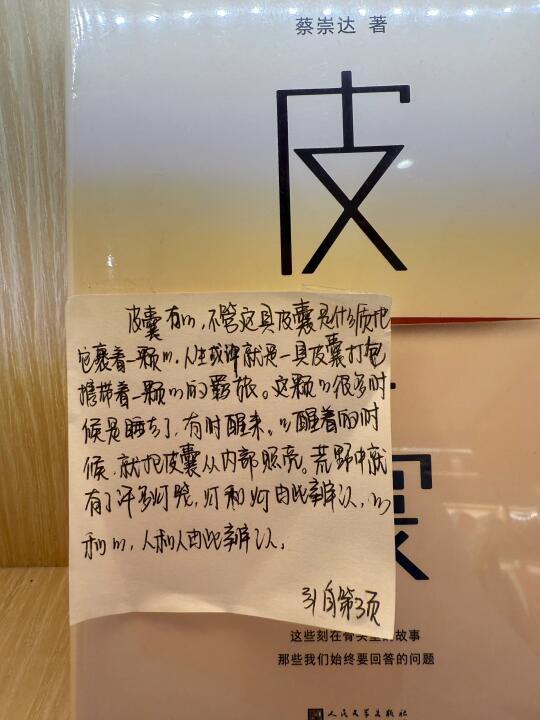 蔡崇达 著
皮
皮囊有心,不管这具皮囊是什么质地
它裹着一颗心,人生或许就是一具皮囊打包
携带着一颗心的羁旅。这颗心很多时
候是睡去了,有时醒来。心醒着的时
候,就把皮囊从内部照亮。荒野中就
有了许多灯笼,灯和灯由此辨认,心
和心,人和人由此辨认。
引自第3页
这些刻在骨头里的故事
那些我们始终要回答的问题
人民文学出版社